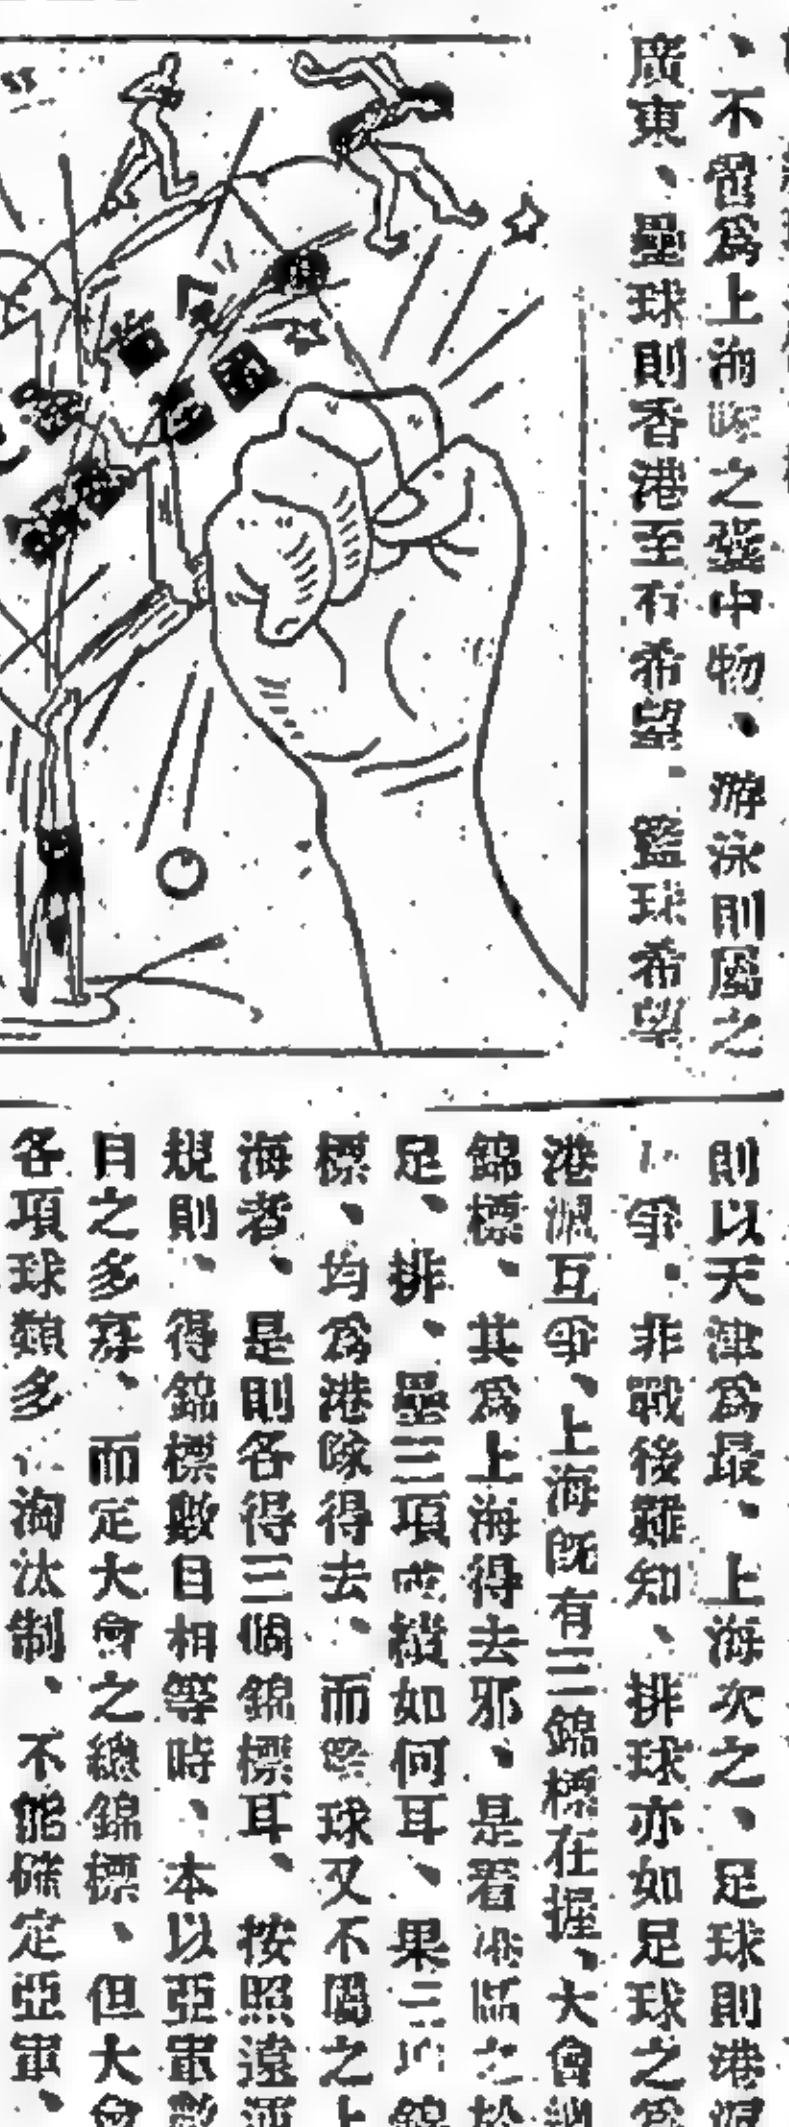 、不啻爲上海隊之囊中物、游泳則屬之
廣東、壘球則香港至有希望、籃球希望
則以天津爲最、上海次之、足球則港滬
爭、非戰後難知、排球亦如足球之爲
港滬互爭、上海既有三錦標在握、大會
錦標、其爲上海得去邪、是看港區之於
足、排、壘三項成績如何耳、果三項錦
標、均爲港隊得去、而籃球又不屬之上
海者、是則各得三個錦標耳、按照遠運
規則、得錦標數目相等時、本以亞軍數
目之多寡、而定大會之總錦標、但大會
各項球類多淘汰制、不能確定亞軍、